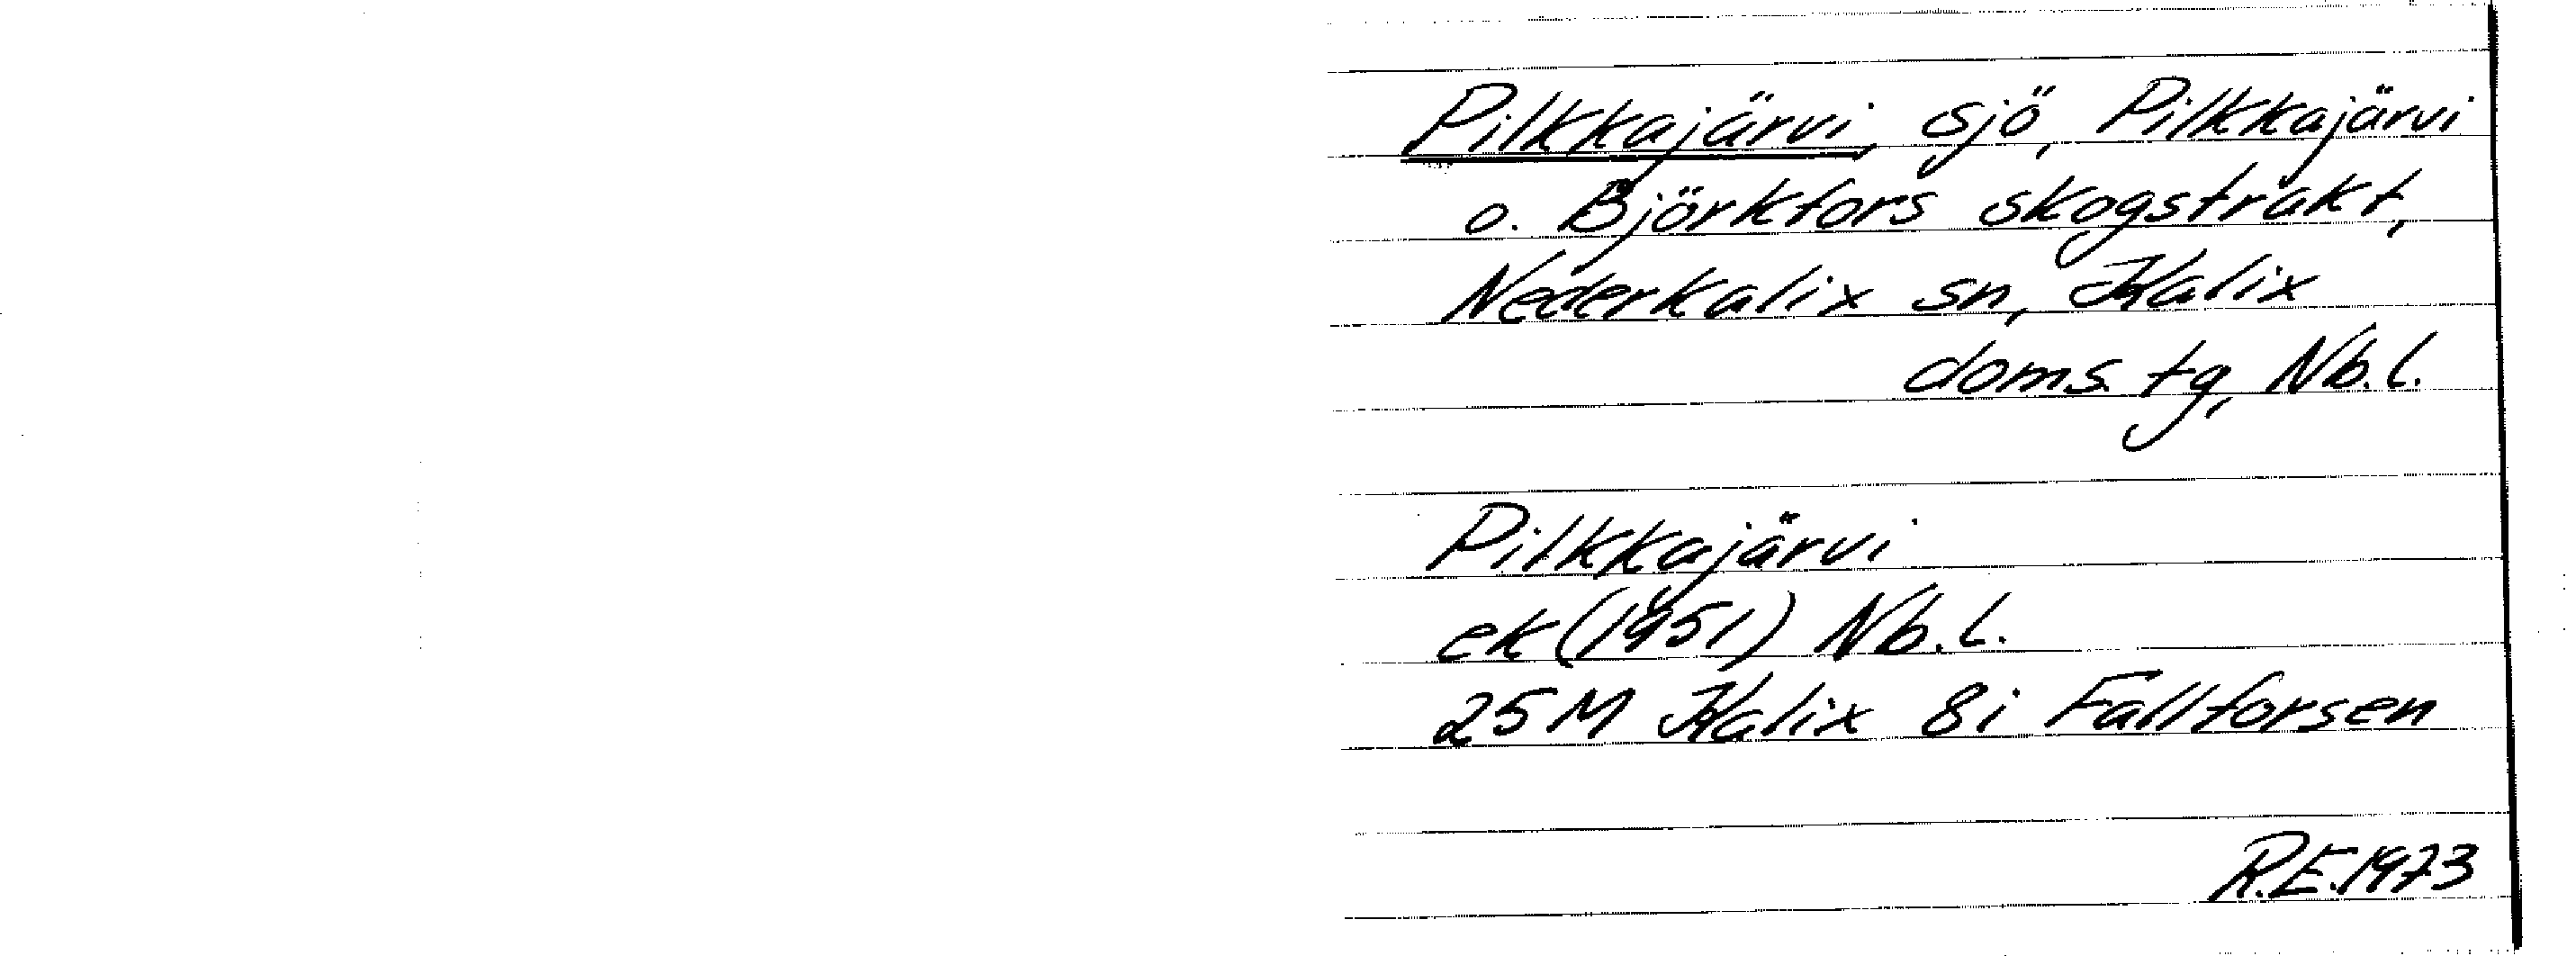 Pilkkajärvi, sjö, Pilkkajärvi
o. Björkfors skogstrakt,
Nederkalix sn, Kalix
doms. tg, Nb.l.
Pilkkajärvi
ek (1951) Nb.l.
25M Kalix 8i Fallforsen
R.E.1973